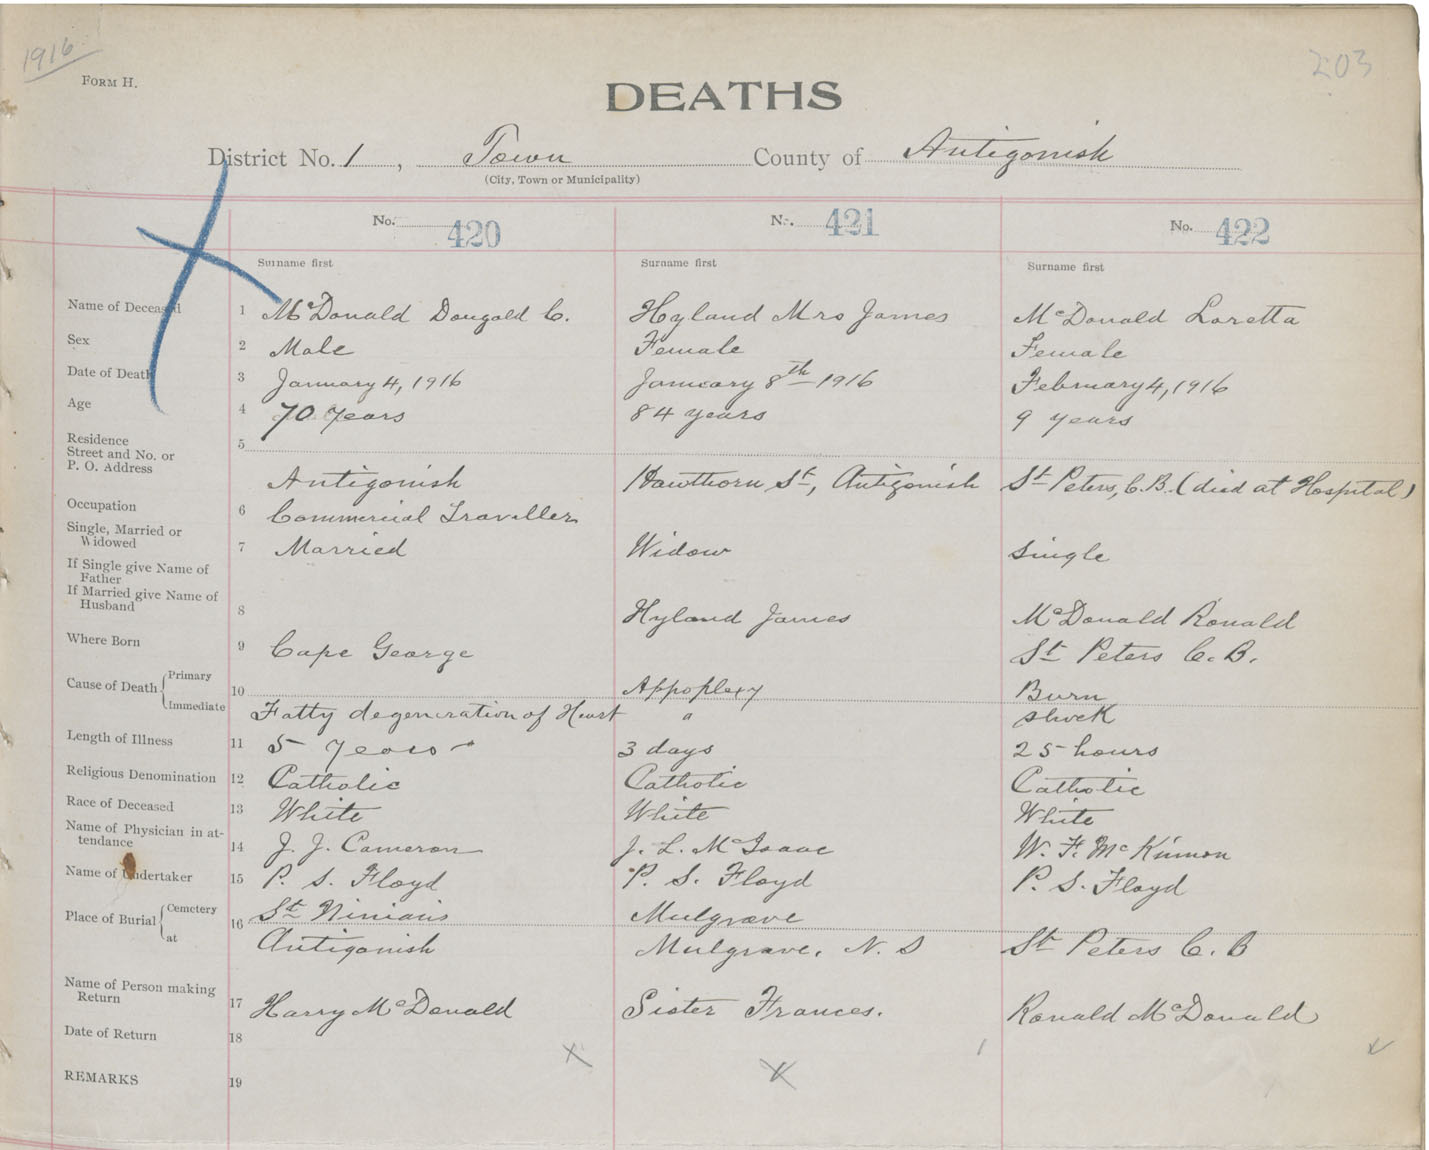 1916
203
FORM H.
DEATHS
District No. 1, Town County of Antigonish
(City, Town or Municipality)
No. 420 No. 421 No. 422
Surname first Surname first Surname first
Name of Deceased 1 McDonald Dougald C. Hyland Mrs James McDonald Loretta
Sex 2 Male Female Female
Date of Death 3 January 4, 1916 January 8th 1916 February 4, 1916
Age 4 70 years 84 years 9 years
Residence
Street and No. or
P. O. Address
5 Antigonish Hawthorn St, Antigonish St Peters, C.B. (died at Hospital)
Occupation 6 Commercial Traveller
Single, Married or
Widowed 7 Married Widow Single
If Single give Name of
Father
If Married give Name of
Husband 8 Hyland James McDonald Ronald
Where Born 9 Cape George St Peters C. B.
Cause of Death Primary 10 Appoplexy Burn
Immediate Fatty degeneration of Heart " shock
Length of Illness 11 5 years 3 days 25 hours
Religious Denomination 12 Catholic Catholic Catholic
Race of Deceased 13 White White White
Name of Physician in at-
tendance 14 J. J. Cameron J. L. McIsaac W. F. McKinnon
Name of Undertaker 15 P. S. Floyd P. S. Floyd P. S. Floyd
Place of Burial Cemetery 16 St Ninians Mulgrave
at Antigonish Mulgrave, N. S St Peters C. B
Name of Person making
Return 17 Harry McDonald Sister Frances. Ronald McDonald
Date of Return 18
REMARKS 19